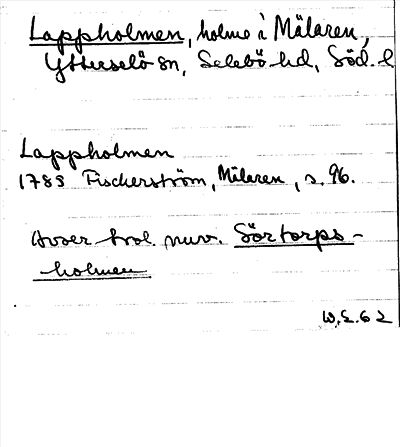 Lappholmen, holme i Mälaren,
Ytterselö sn, Selebö hd, Söd. l
Lappholmen
1783 Fischerström, Mälaren, s. 96.
Avser trol. nuv. Sörtorps-
holmen
W.E. 62